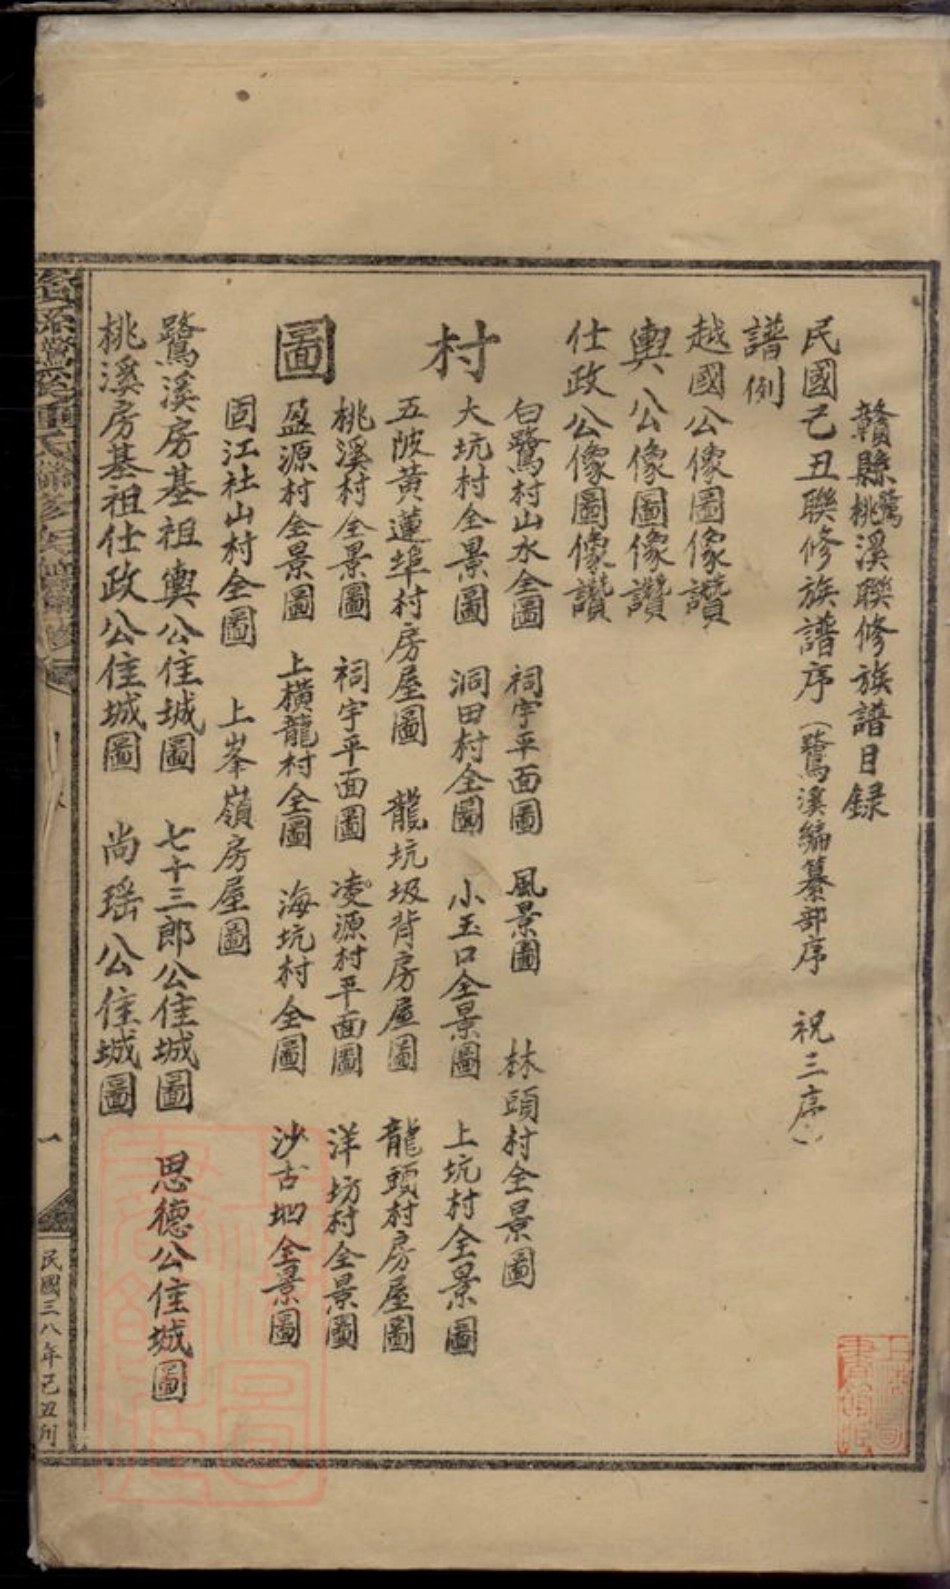 贛縣鷺桃溪聯修族譜目録
民國己丑聯修族譜序（鷺溪編纂部序　祝三序）
譜例
越國公像圖像讚
輿公像圖像讚
仕政公像圖像讚
村圖
白鷺村山水全圖　祠宇平面圖　風景圖　林頭村全景圖
大坑村全景圖　洞田村全圖　小玉口全景圖　上坑村全景圖
五陂黃蓮埠村房屋圖　龍坑圾背房屋圖　龍頭村房屋圖
桃溪村全景圖　祠宇平面圖　凌源村平面圖　洋坊村全景圖
盈源村全景圖　上橫龍村全圖　海坑村全圖　沙古坵全景圖
固江社山村全圖　上峯嶺房屋圖
鷺溪房基祖輿公佳城圖　七十三郎公佳城圖　思德公佳城圖
桃溪房基祖仕政公佳城圖　尚瑶公佳城圖
一
民國三八年己丑刊
上海圖書館藏